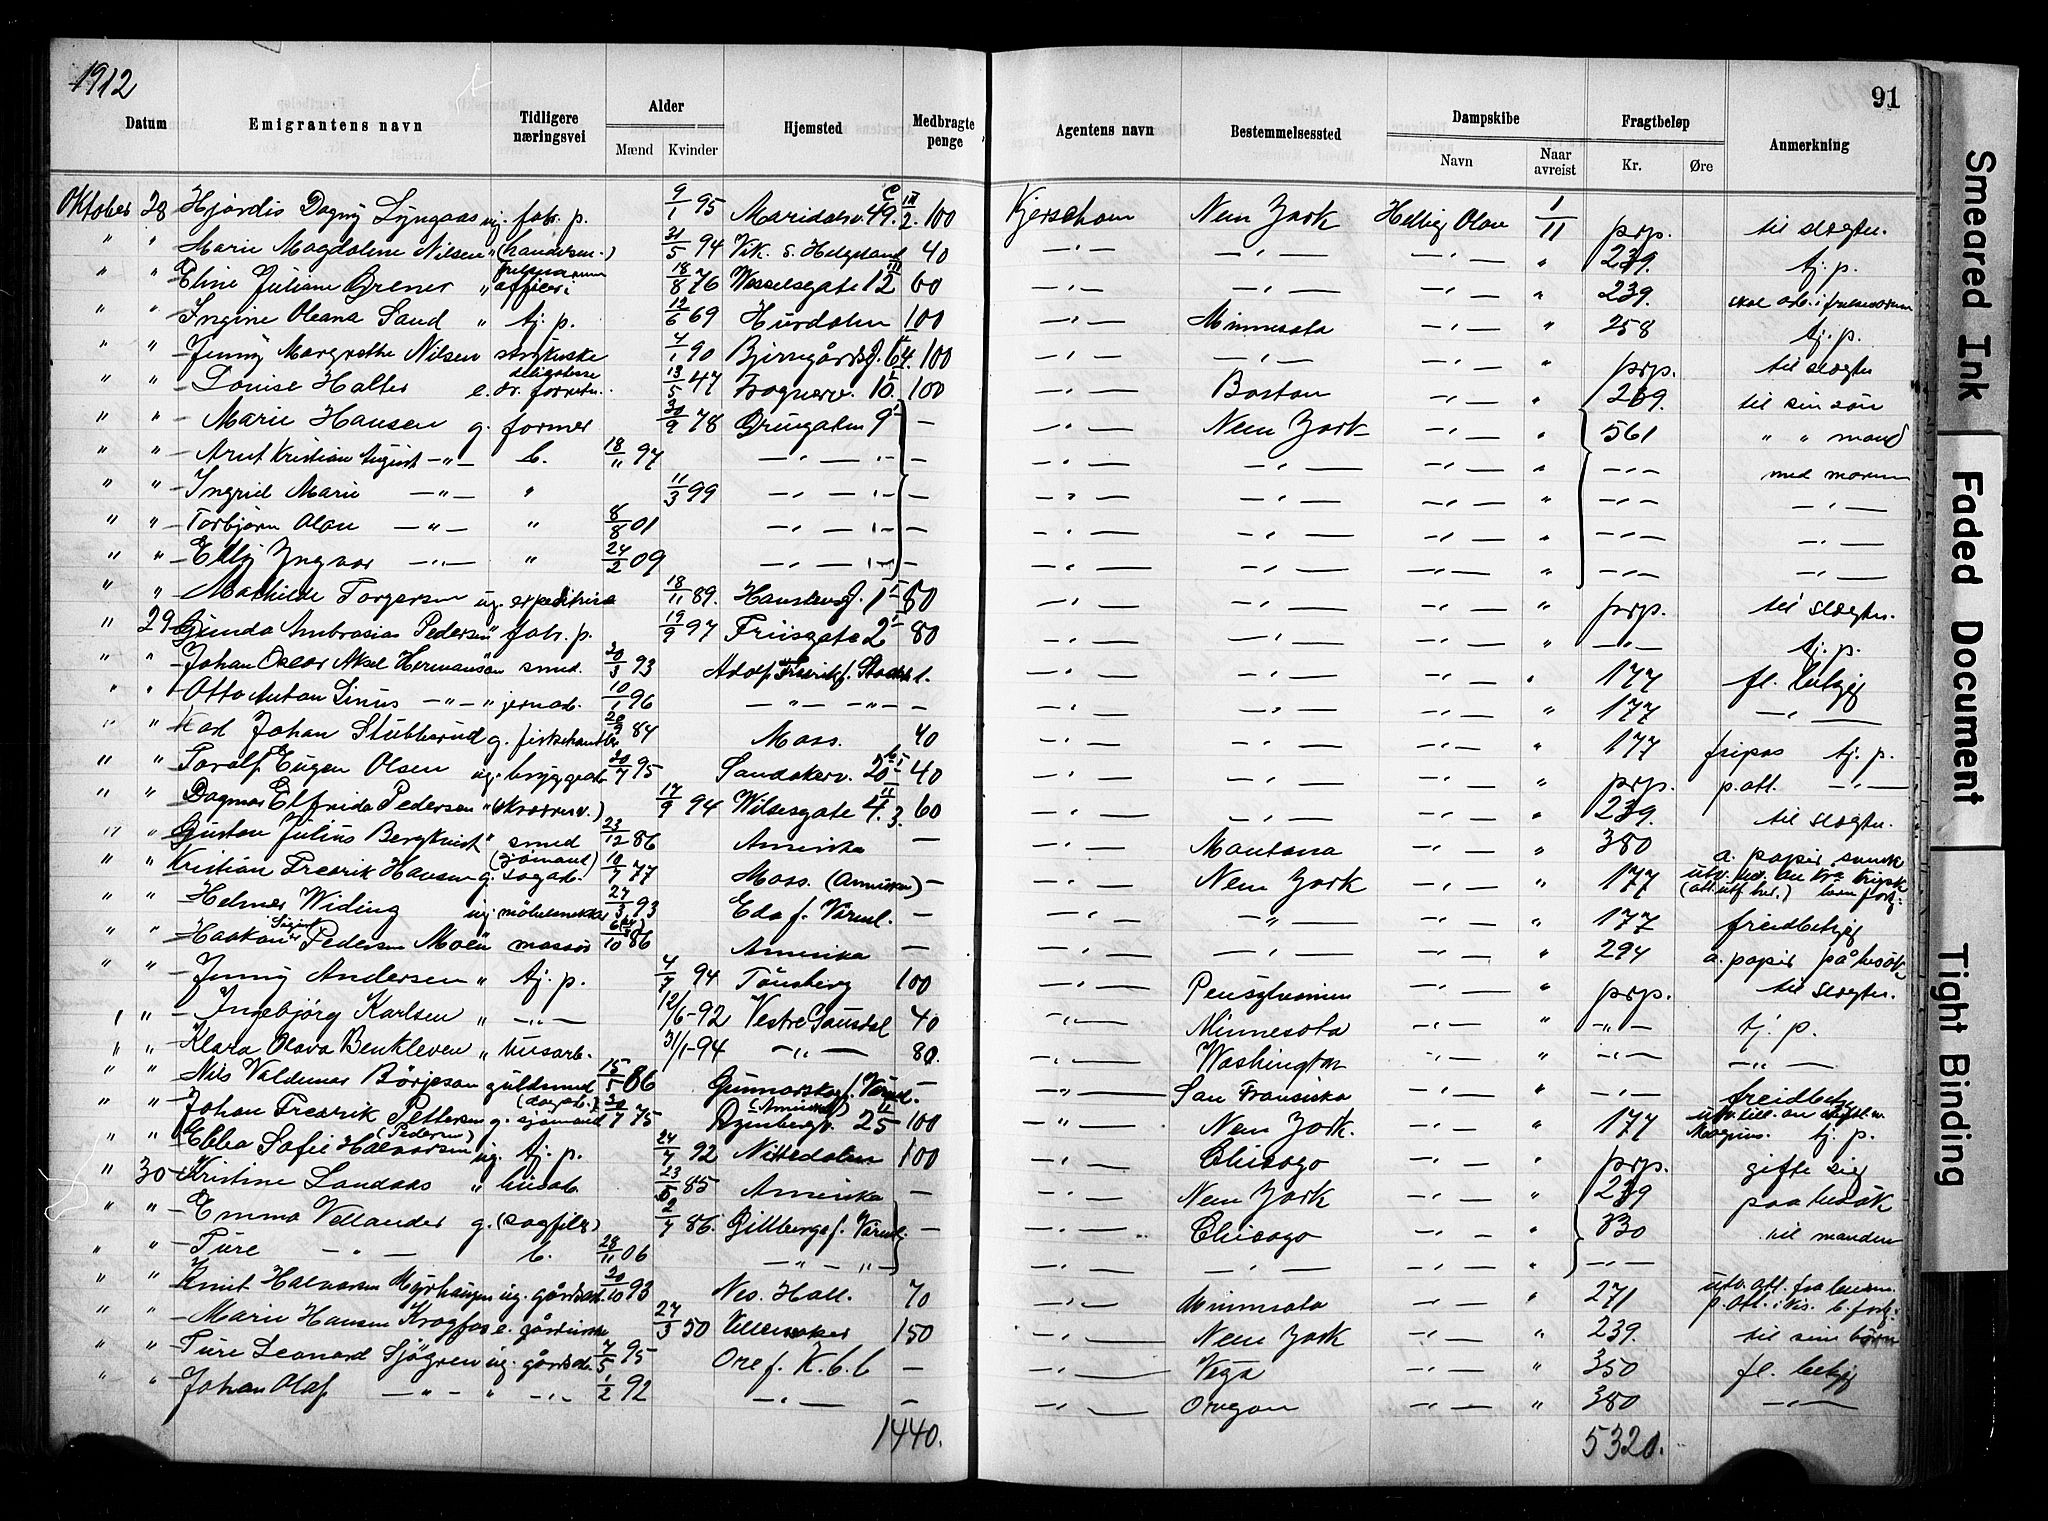 1912
91
Datum Emigrantens navn Tidligere næringsvei Alder Mænd Kvinder Hjemsted Medbragte penge Agentens navn Bestemmelsessted Dampskibe Navn Naar avreist Fragtbeløp Kr. Øre Anmerkning
Oktober 28 Hjördis Dagny Lyngaas ug. fabr. p. 9/1 95 Maridalsv. 49. C III 2. 100 Kjerschow New York Hellig Olav 1/11 prp. til slægtn.
" " Marie Magdalene Nilsen " 31/5 94 Vik. S. Helgeland 40 —"— —"— —"— " 239. tj. p.
" " Eline Juliane Grener " 18/8 76 Wesselsgate 12 III 60 —"— —"— —"— " 239.
" " Ingine Oleana Sand " tj. p. 12/6 69 Hurdalen 100 —"— Minnesota —"— " 258 tj. p.
" " Jenny Margrethe Nilsen strykerske 4/1 90 64. 100 —"— —"— —"— prp. til slægtn
" " Louise Halter e. 13/5 47 Frognerv. 10. 100 —"— Boston —"— " 239. til sin sön
" " Marie Hansen g. former 30/9 78 Grüngaten 9 — —"— New York —"— " 561 " " mand
" " Arnt Kristian August —"— b. 18/11 97 —"— — —"— —"— —"— " —"— med moren
" " Ingrid Marie —"— " 11/3 99 —"— — —"— —"— —"— " —"— —"—
" " Torbjörn Olav —"— " 8/8 01 —"— — —"— —"— —"— " —"— —"—
" " Elly Yngvar —"— " 24/2 09 —"— — —"— —"— —"— " —"— —"—
" " Mathilde Torgersen ug. expeditrice 18/11 89. 1 80 —"— —"— —"— " prp. til slægtn.
" 29 Gunda Ambrosia Pedersen " fabr. p. 19/9 97 Friisgate 2 80 —"— —"— —"— " —"— tj. p.
" " Johan Oscar Aksel Hermansson smed. 20/3 93 Adolf Fredrik f. Stockh. —"— —"— —"— " 177 fl. betyg
" " Otto Anton Linus —"— " jernarb. 10/1 96 —"— —"— — —"— —"— —"— " 177 —"—
" " Karl Johan Stubberud g. fiskehandler 20/9 84 Moss. 40 —"— —"— —"— " 177 fripas tj. p.
" " Toralf Eugen Olsen ug. bryggearb. 20/7 95 Sandakerv. 20 40 —"— —"— —"— " prp. p. att. —"—
" " Dagmar Elfrida Pedersen " 17/9 94 Wilsesgate 4. II 3. 60 —"— —"— —"— " 239. til slægtn.
" " Gustav Julius Bergkvist " smed 23/12 86 Amerika — —"— Montana —"— " 380 a. papir svensk
" " Kristian Fredrik Hansen g. (sjömand) sagarb. 10/7 77 Moss. (Amerika) — —"— New York —"— " 177
" " Helmer Widing ug. möbelsnekker 27/3 93 Eda f. Värml. — —"— —"— —"— " 177 freidbetyg
" " Haakon Pedersen Moen massör 6/10 86 Amerika — —"— —"— —"— " 294 a. papir på besök
" " Jenny Andersen " tj. p. 4/7 94 Tönsberg 100 —"— Pensylvanien —"— " prp. til slægtn.
" " Ingebjörg Karlsen " —"— 12/6-92 Vestre Gausdal 40 —"— Minnesota —"— " —"— tj. p.
" " Klara Olava Benkleven " husarb. 31/1-94 —"— 80. —"— Washington —"— " —"— —"—
" " Nils Valdemar Börjeson guldsmed 15/5 86 Gunnarskog f. Värml. — —"— San Fransisko —"— " —"— freidbetyg
" " Johan Fredrik Pettersen g. sjömand 30/7 75 (Amerika) 25 II 100 —"— New York. —"— " 177 tj. p.
" " Ebba Sofie Halvorsen (Pedersen) ug. tj. p. 24/7 92 Nittedalen 100 —"— Chicago —"— " prp. gifte sig
" 30 Kristine Landaas " husarb. 23/5 85 Amerika — —"— New York —"— " 239 paa besök
" " Emma Vellander g. (sagfiler) 2/7 86. Gillberga f. Värml. — —"— Chicago —"— " 330 til manden
" " Ture —"— b. 28/11 06 —"— — —"— —"— —"— " —"—
" " Knut Halvorsen Myrhaugen ug. gårdsarb. 20/10 93 Nes. Hall. 70 —"— Minnesota —"— " 271
" " Marie Hansen Krogfoss e. 27/3 50 Ullensaker 150 —"— New York —"— " 239. til sine börn
" " Ture Leonard Sjögren ug. gårdsarb. 7/5 95 Ore f. K.b.l — —"— Vega —"— " 350 fl. betyg
" " Johan Olaf —"— " —"— 1/2 92 —"— — —"— Oregon —"— " 380 —"—
1440. 5320.
Smeared Ink
Faded Document
Tight Binding